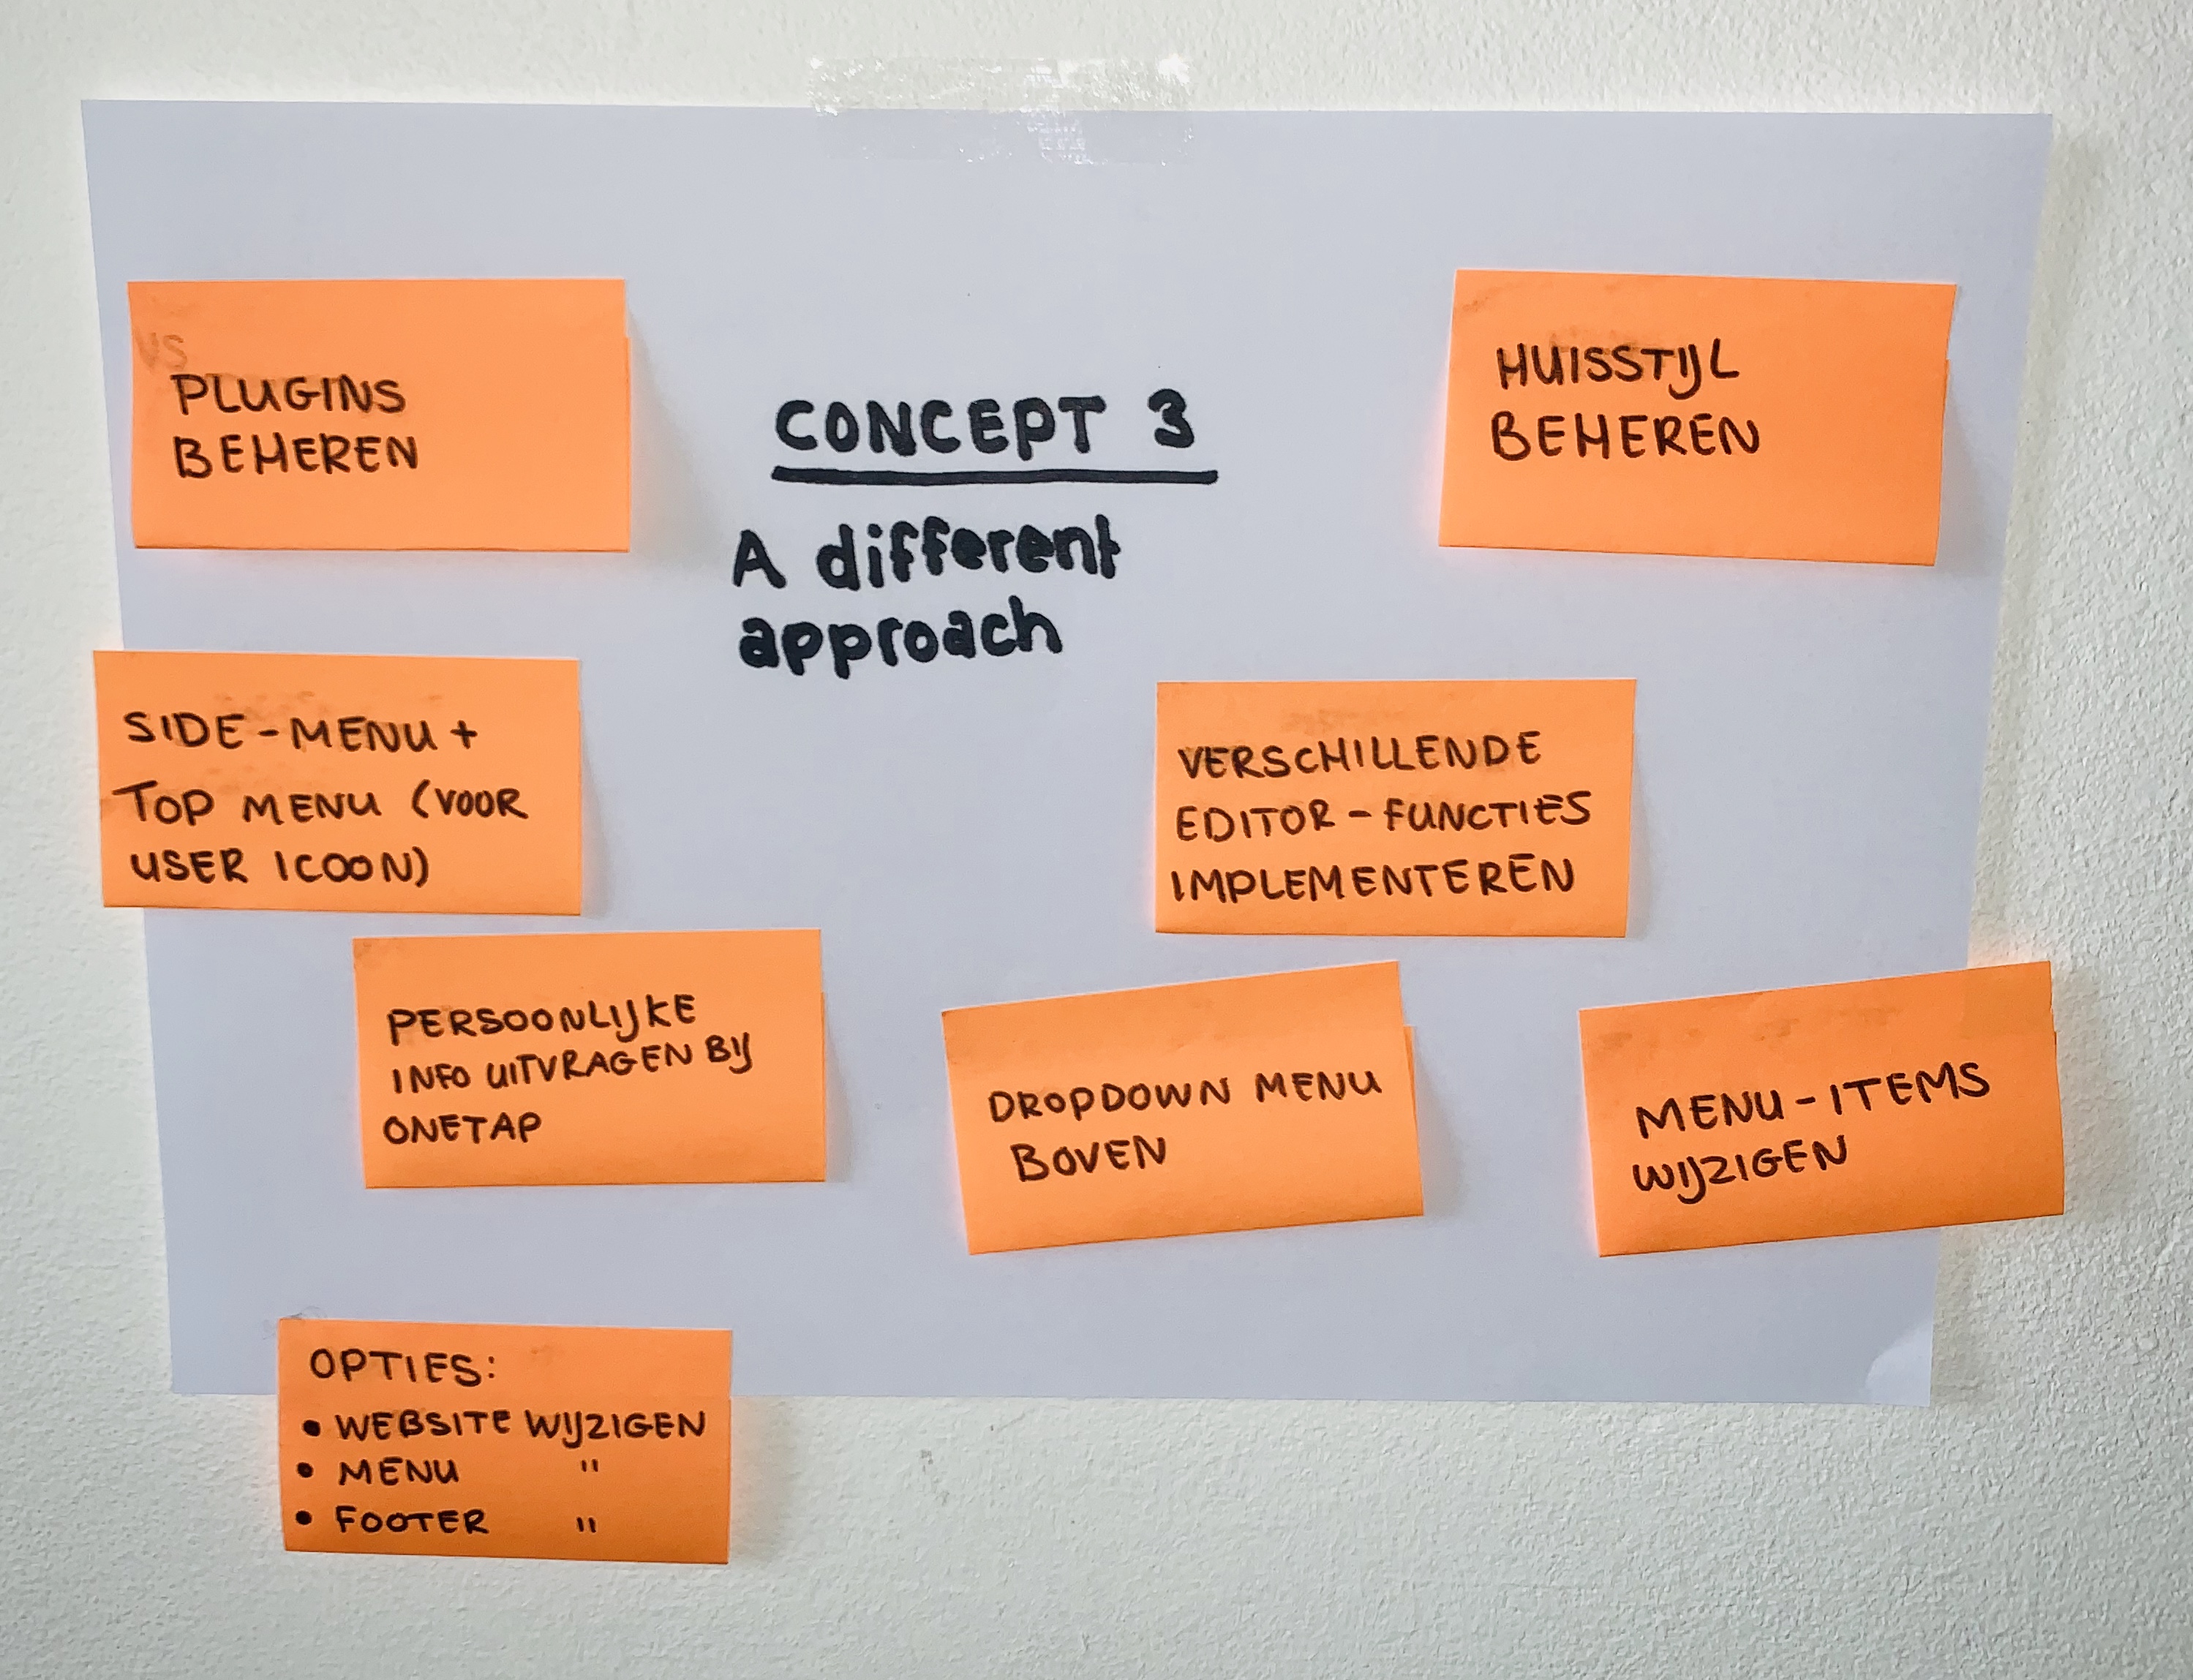 CONCEPT 3
A different
approach
PLUGINS
BEHEREN
HUISSTIJL
BEHEREN
SIDE-MENU +
TOP MENU (VOOR
USER ICOON)
VERSCHILLENDE
EDITOR-FUNCTIES
IMPLEMENTEREN
PERSOONLIJKE
INFO UITVRAGEN BIJ
ONETAP
DROPDOWN MENU
BOVEN
MENU-ITEMS
WIJZIGEN
OPTIES:
• WEBSITE WIJZIGEN
• MENU "
• FOOTER "